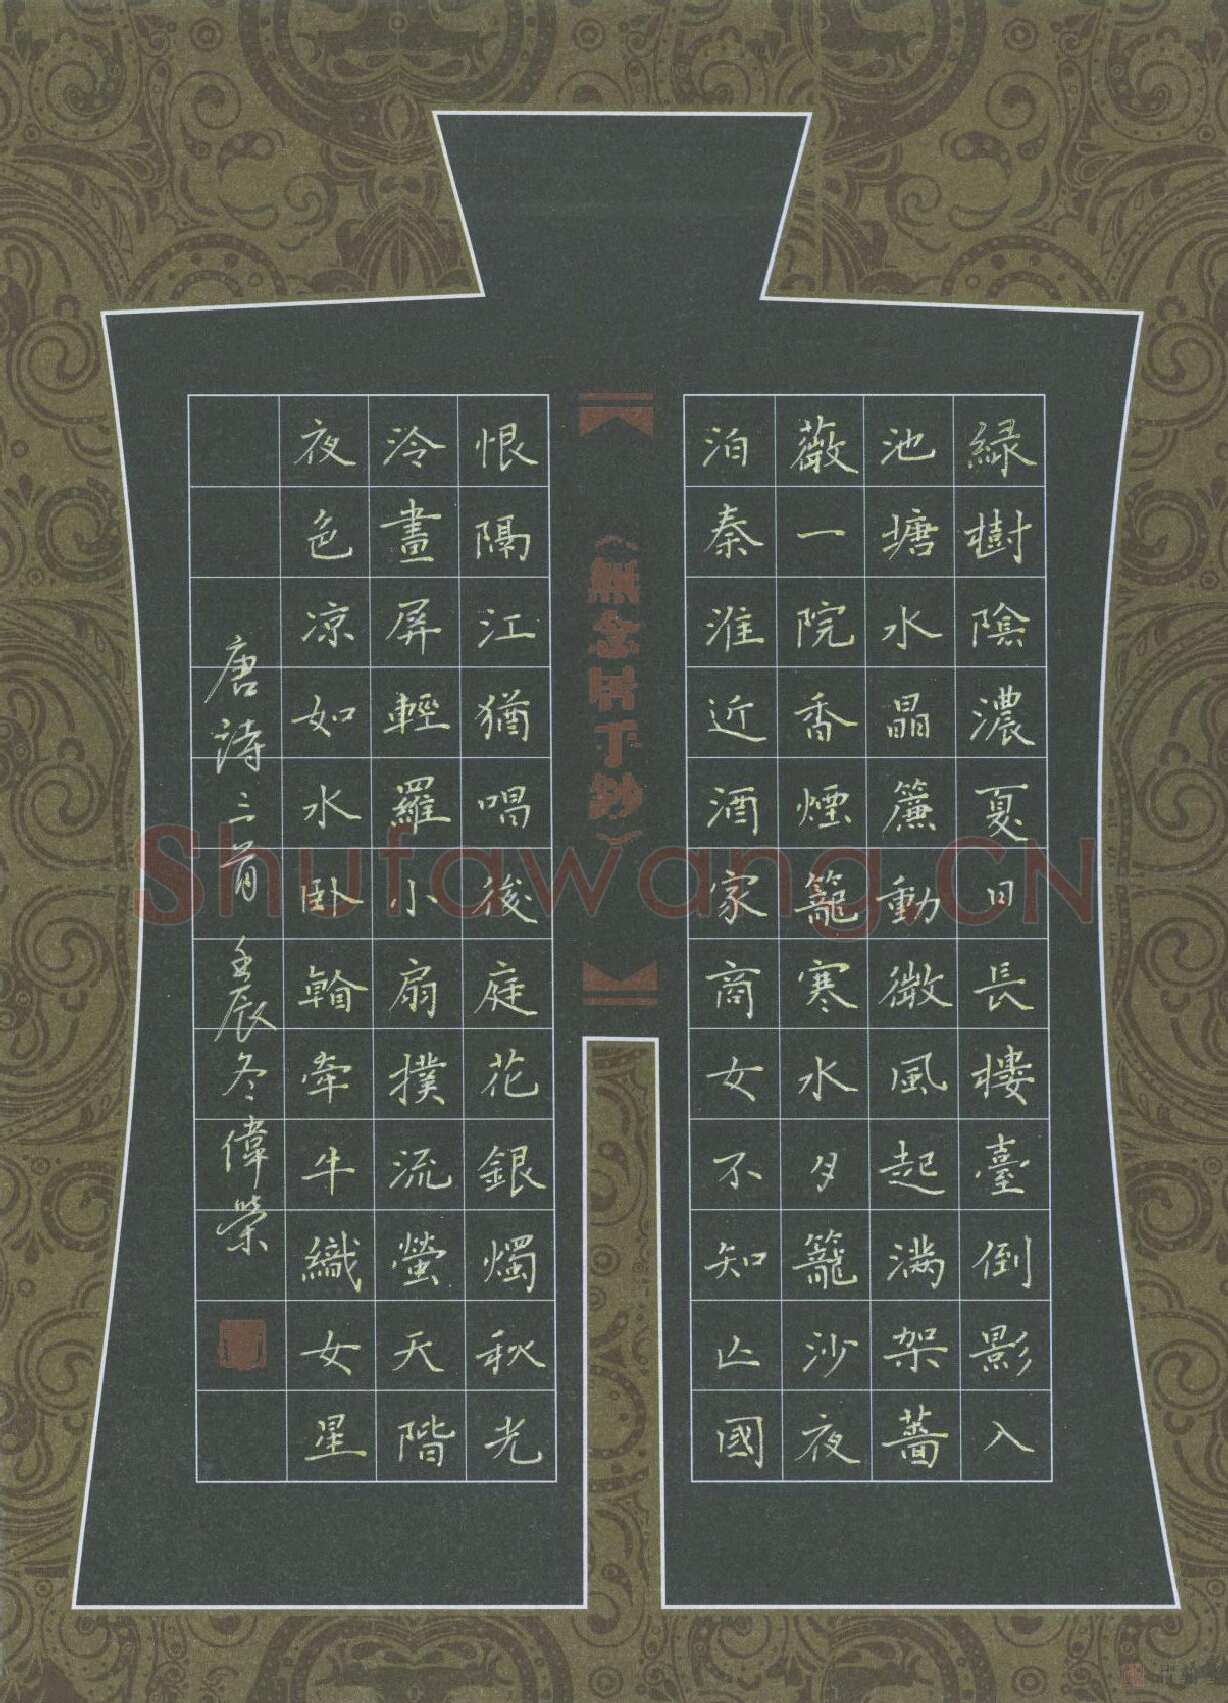 緑樹陰濃夏日長樓臺倒影入
池塘水晶簾動微風起滿架薔
薇一院香煙籠寒水月籠沙夜
泊秦淮近酒家商女不知亡國
《無念居手鈔》
恨隔江猶唱後庭花銀燭秋光
冷畫屏輕羅小扇撲流螢天階
夜色凉如水卧看牽牛織女星
唐詩三首 壬辰冬偉榮
Shufawang.CN